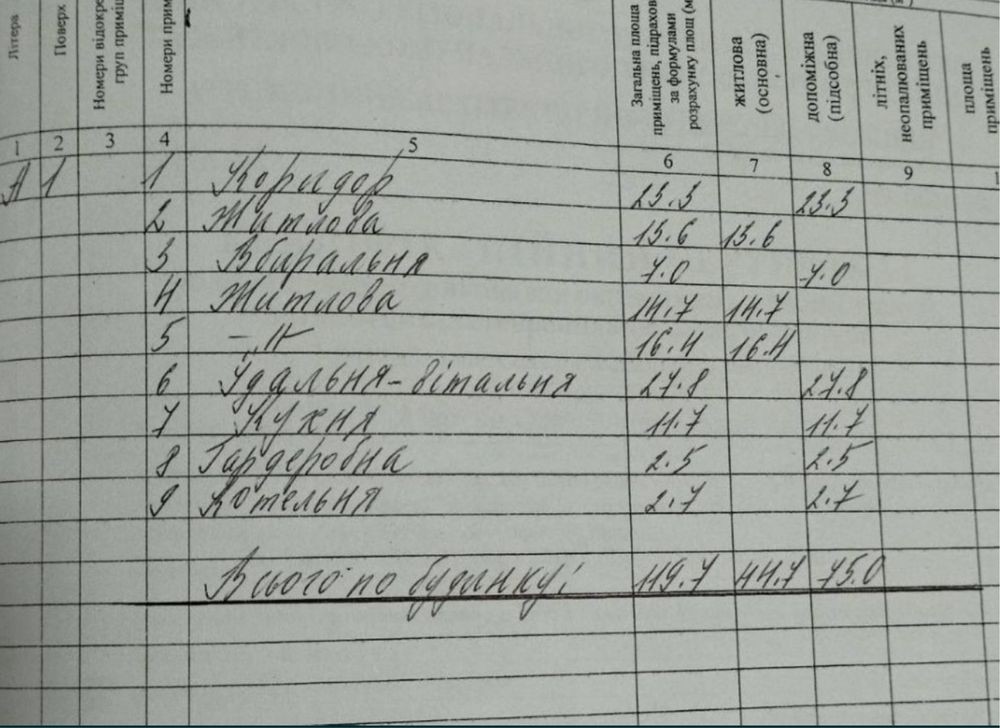 Літера
Поверх
Номери відокре
груп приміщ
Номери прим
Загальна площа
приміщень, підрахов
за формулами
розрахунку площ (м
житлова
(основна)
допоміжна
(підсобна)
літніх,
неопалюваних
приміщень
площа
приміщень
1 2 3 4 5 6 7 8 9 1
А 1 1 Коридор 23.3 23.3
2 Житлова 13.6 13.6
3 Вбиральня 7.0 7.0
4 Житлова 14.7 14.7
5 –„– 16.4 16.4
6 Їдальня-вітальня 27.8 27.8
7 Кухня 11.7 11.7
8 Гардеробна 2.5 2.5
9 Котельня 2.7 2.7
Всього по будинку: 119.7 44.7 75.0